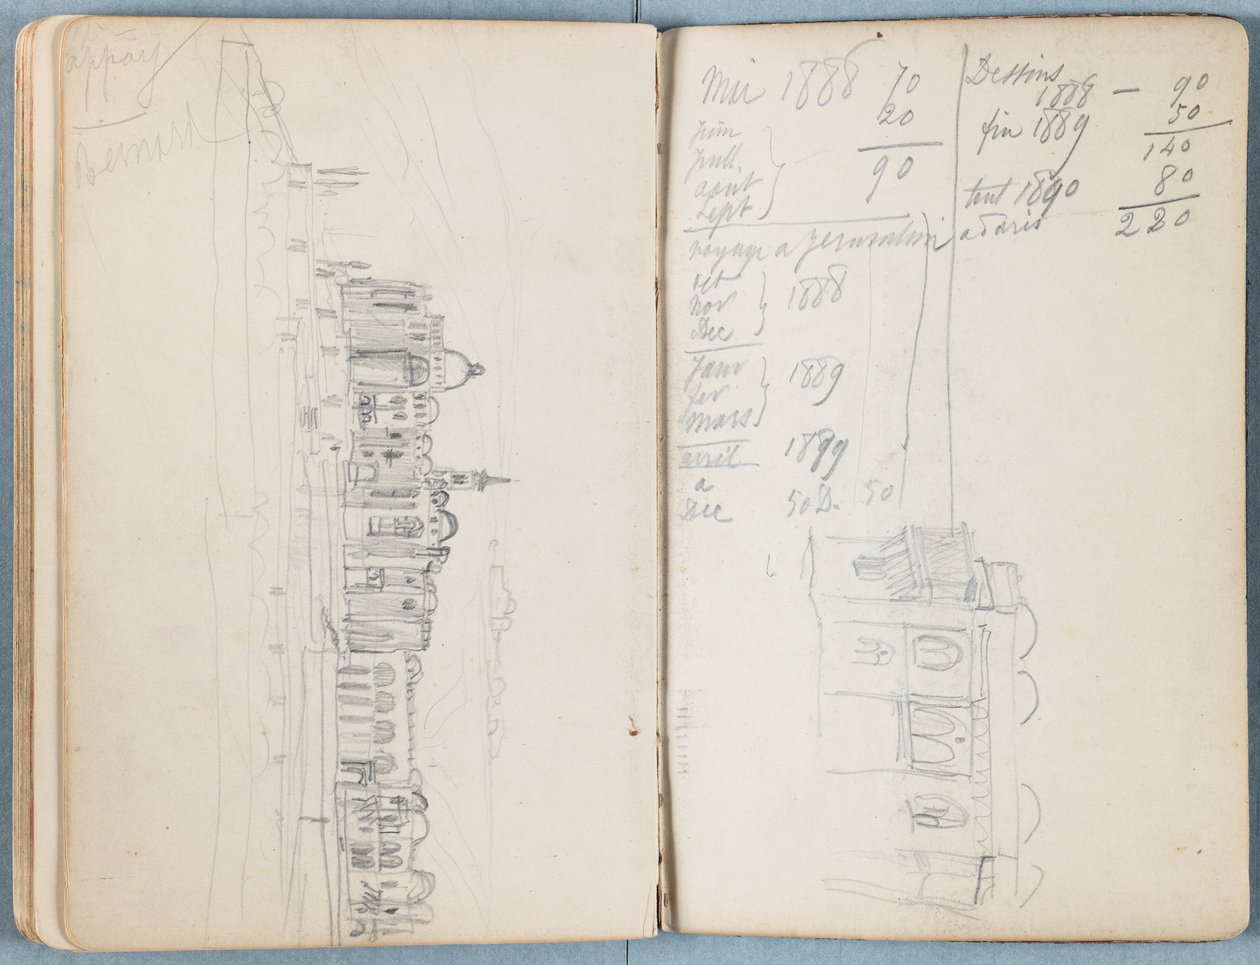 appay
Bernard
Mai 1888 70
20
90
juin
juill
août
Sept
voyage a Jerusalem
oct
Nov
Dec
1888
Janv
fev
Mars
1889
avril
a
Dec
1889
50 D. 50
Dessins
1888 — 90
fin 1889 50
140
tout 1890 80
220